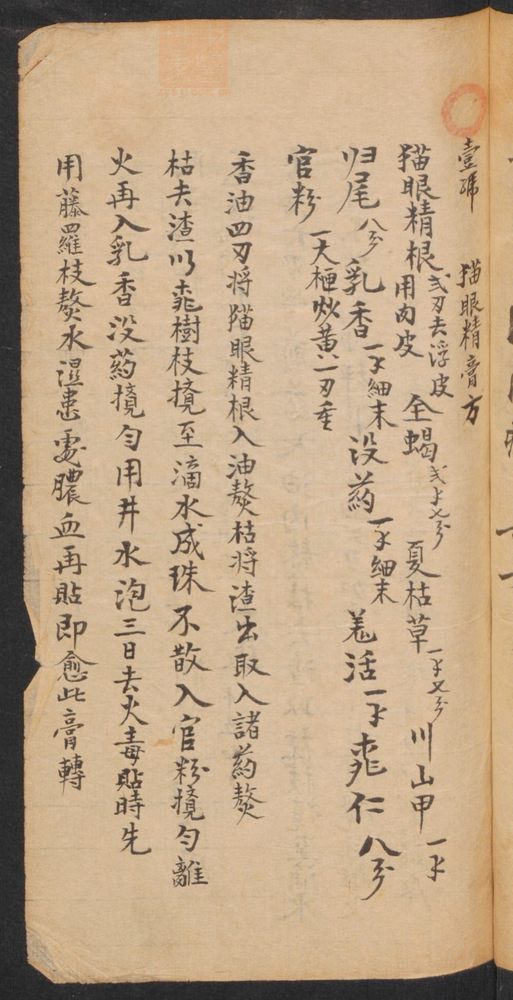 壹號　貓眼精膏方
猫眼精根 弍刃去浮皮用内皮　全蝎 弍个七分　夏枯草 一个又分　川山甲 一个
归尾 八分　乳香 一个細末　没药 一个細末　羌活 一个　桃仁 八分
官粉 一大 炒黄 二刃重
香油四刃将猫眼精根入油熬枯将渣出取入諸药熬
枯去渣以桃樹枝搅至滴水成珠不散入官粉搅匀離
火再入乳香没药搅匀用井水泡三日去火毒貼時先
用藤羅枝熬水濕患處膿血再貼即愈此膏轉